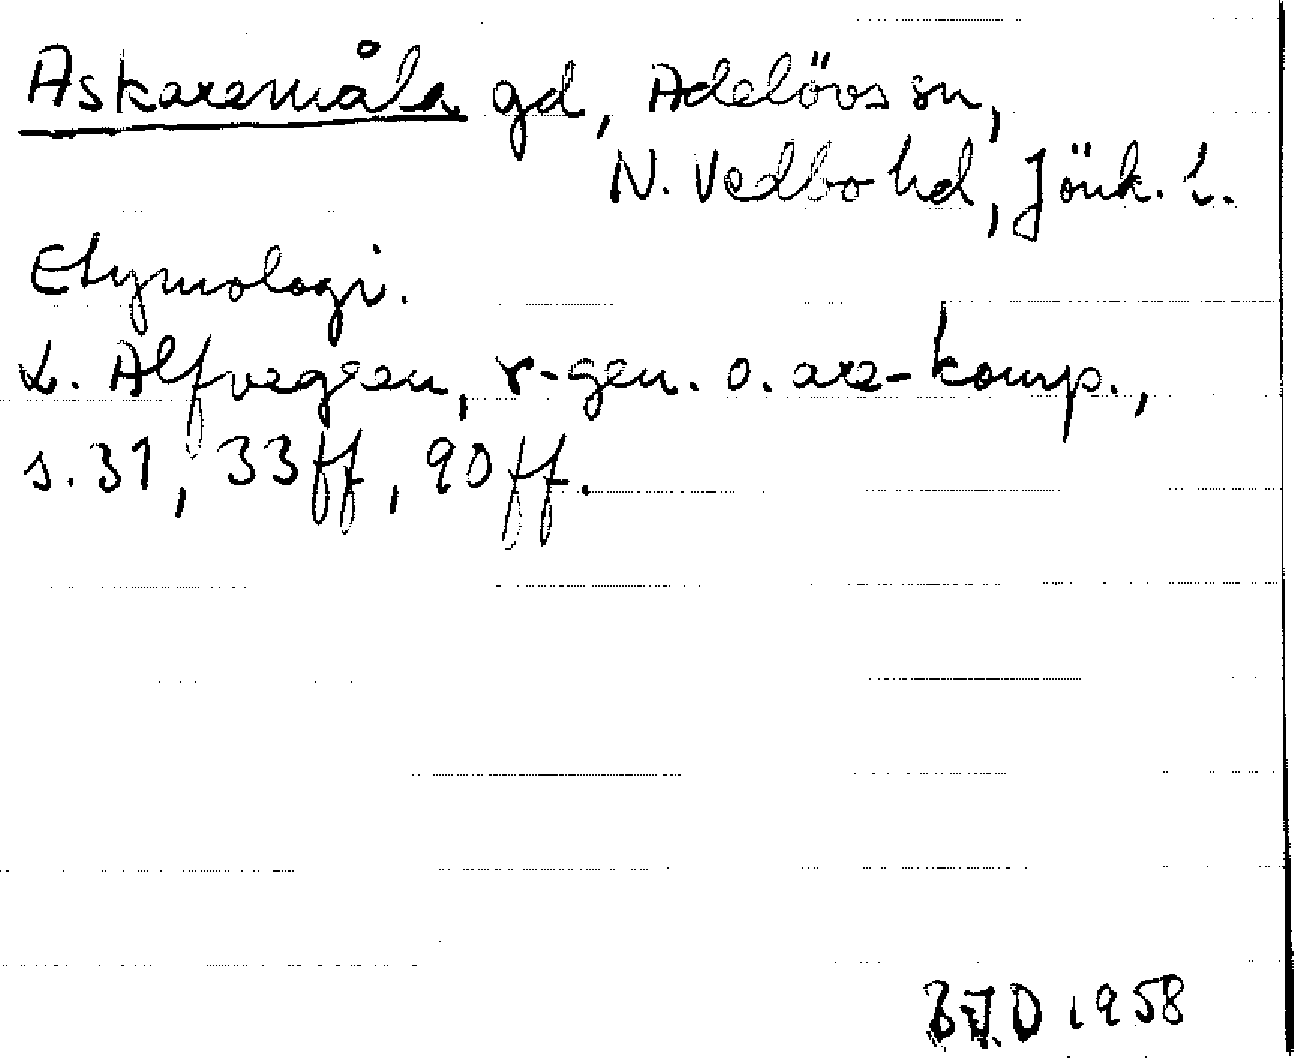 Askaremåla gd, Adelövs sn,
N. Vedbo hd, Jönk. l.
Etymologi.
L. Alfvegren, r-gen. o. are-komp.,
s. 31, 33ff, 90ff.
1958